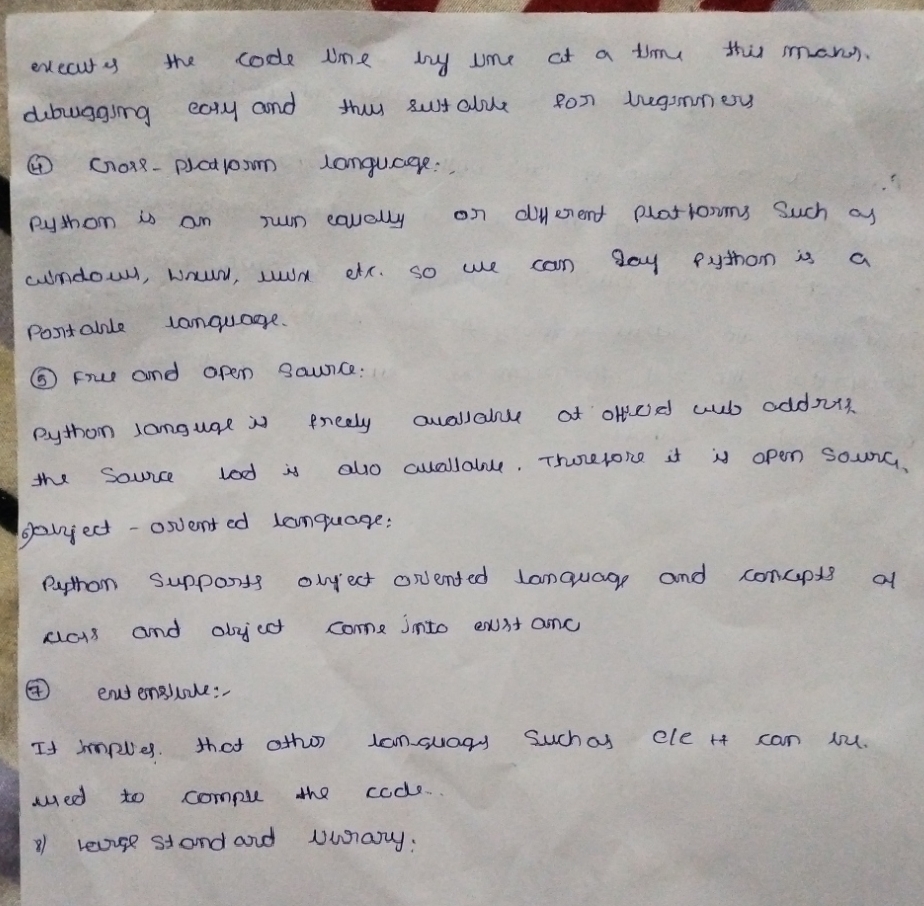 executes the code line by line at a time this makes.
debugging easy and thus suitable for beginners
④ Cross-platform language:.
Python is an run equally on different platforms Such as
windows, Linux, unix etc. so we can Say Python is a
Portable language.
⑤ Free and open Source:
Python language is freely available at official web address
the Source cod is also available. Therefore it is open Source.
6) object - oriented language:
Python Supports object oriented language and concepts of
class and object come into existanc
⑦ extensible:-
It implies. that other languages Such as C/C++ can be.
used to compile the code..
8) Large standard library: